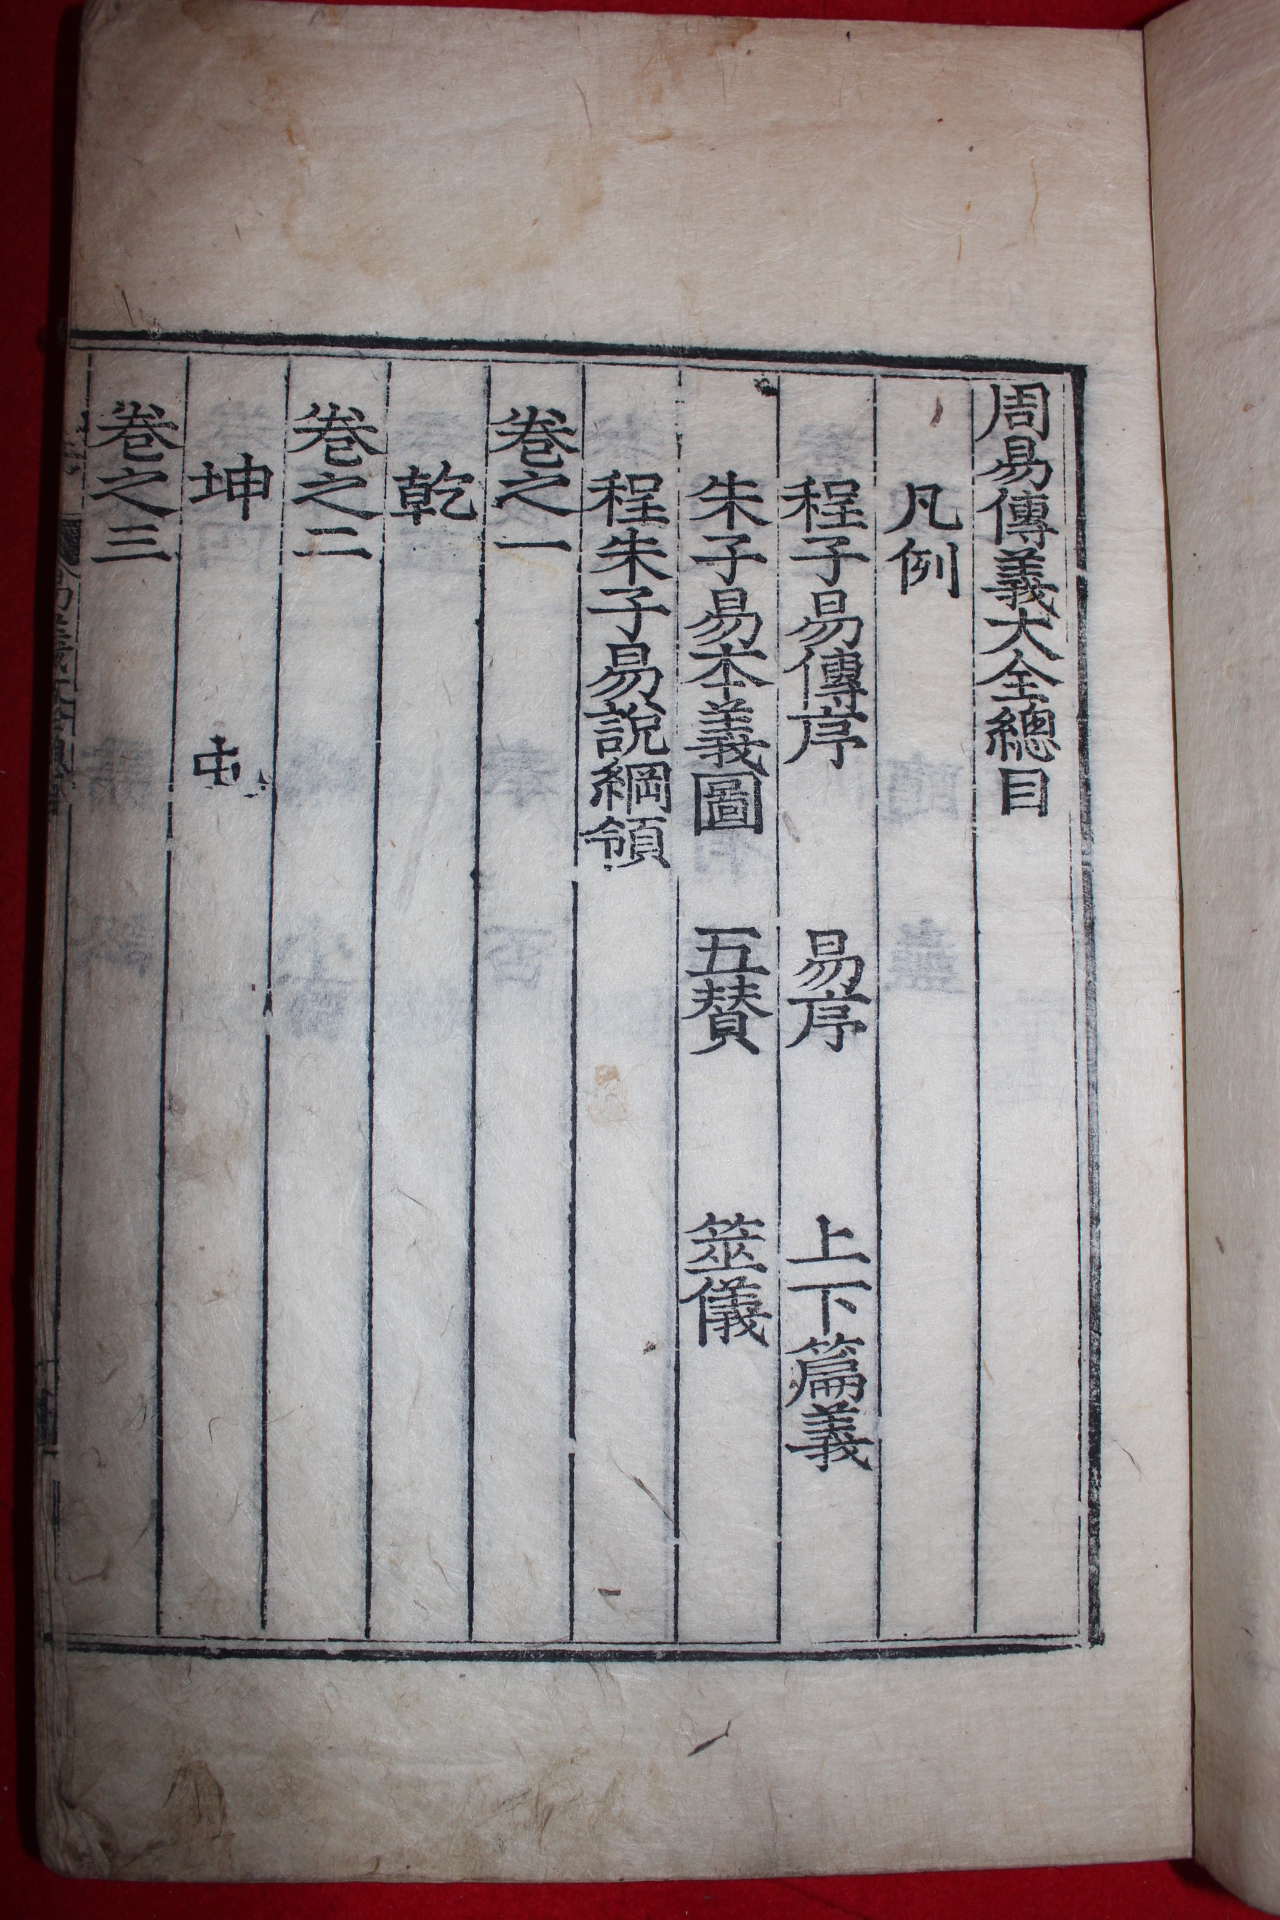 周易傳義大全總目
凡例
程子易傳序 易序 上下篇義
朱子易本義圖 五賛 筮儀
程朱子易說綱領
卷之一
乾
卷之二
坤 屯
卷之三